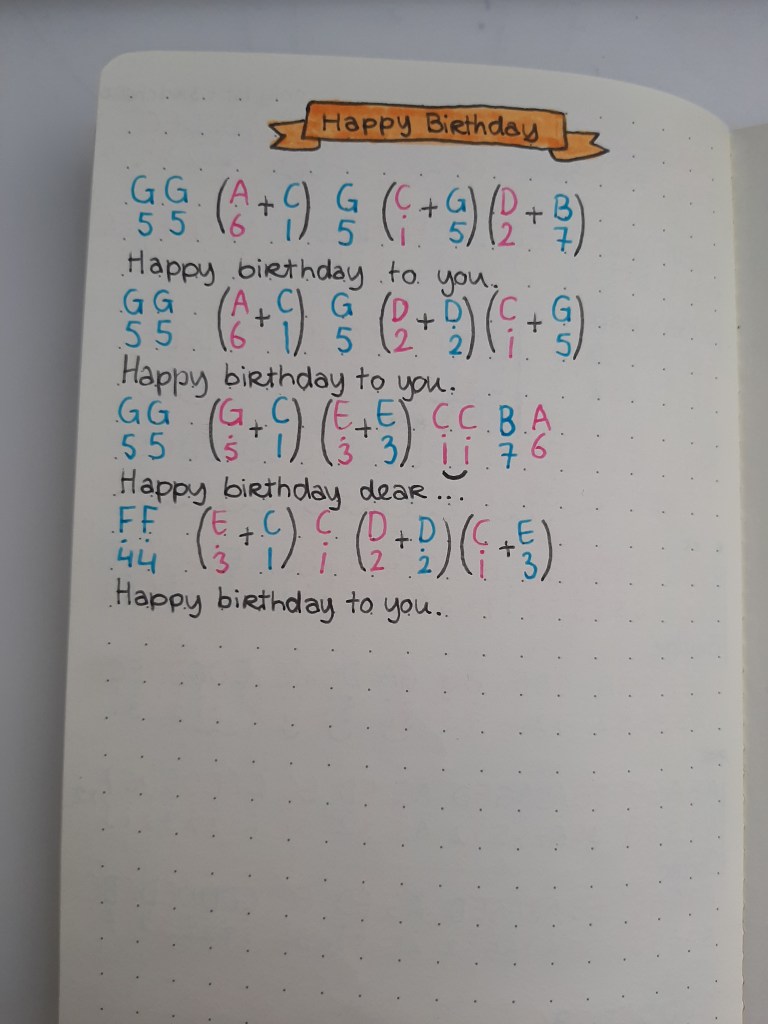 Happy Birthday
G G (A + C) G (C + G) (D + B)
5 5 6 1 5 i 5 2 7
Happy birthday to you.
G G (A + C) G (D + D) (C + G)
5 5 6 1 5 2 2 i 5
Happy birthday to you.
G G (G + C) (E + E) C C B A
5 5 5 1 3 3 i i 7 6
Happy birthday dear...
F F (E + C) C (D + D) (C + E)
4 4 3 1 i 2 2 i 3
Happy birthday to you.